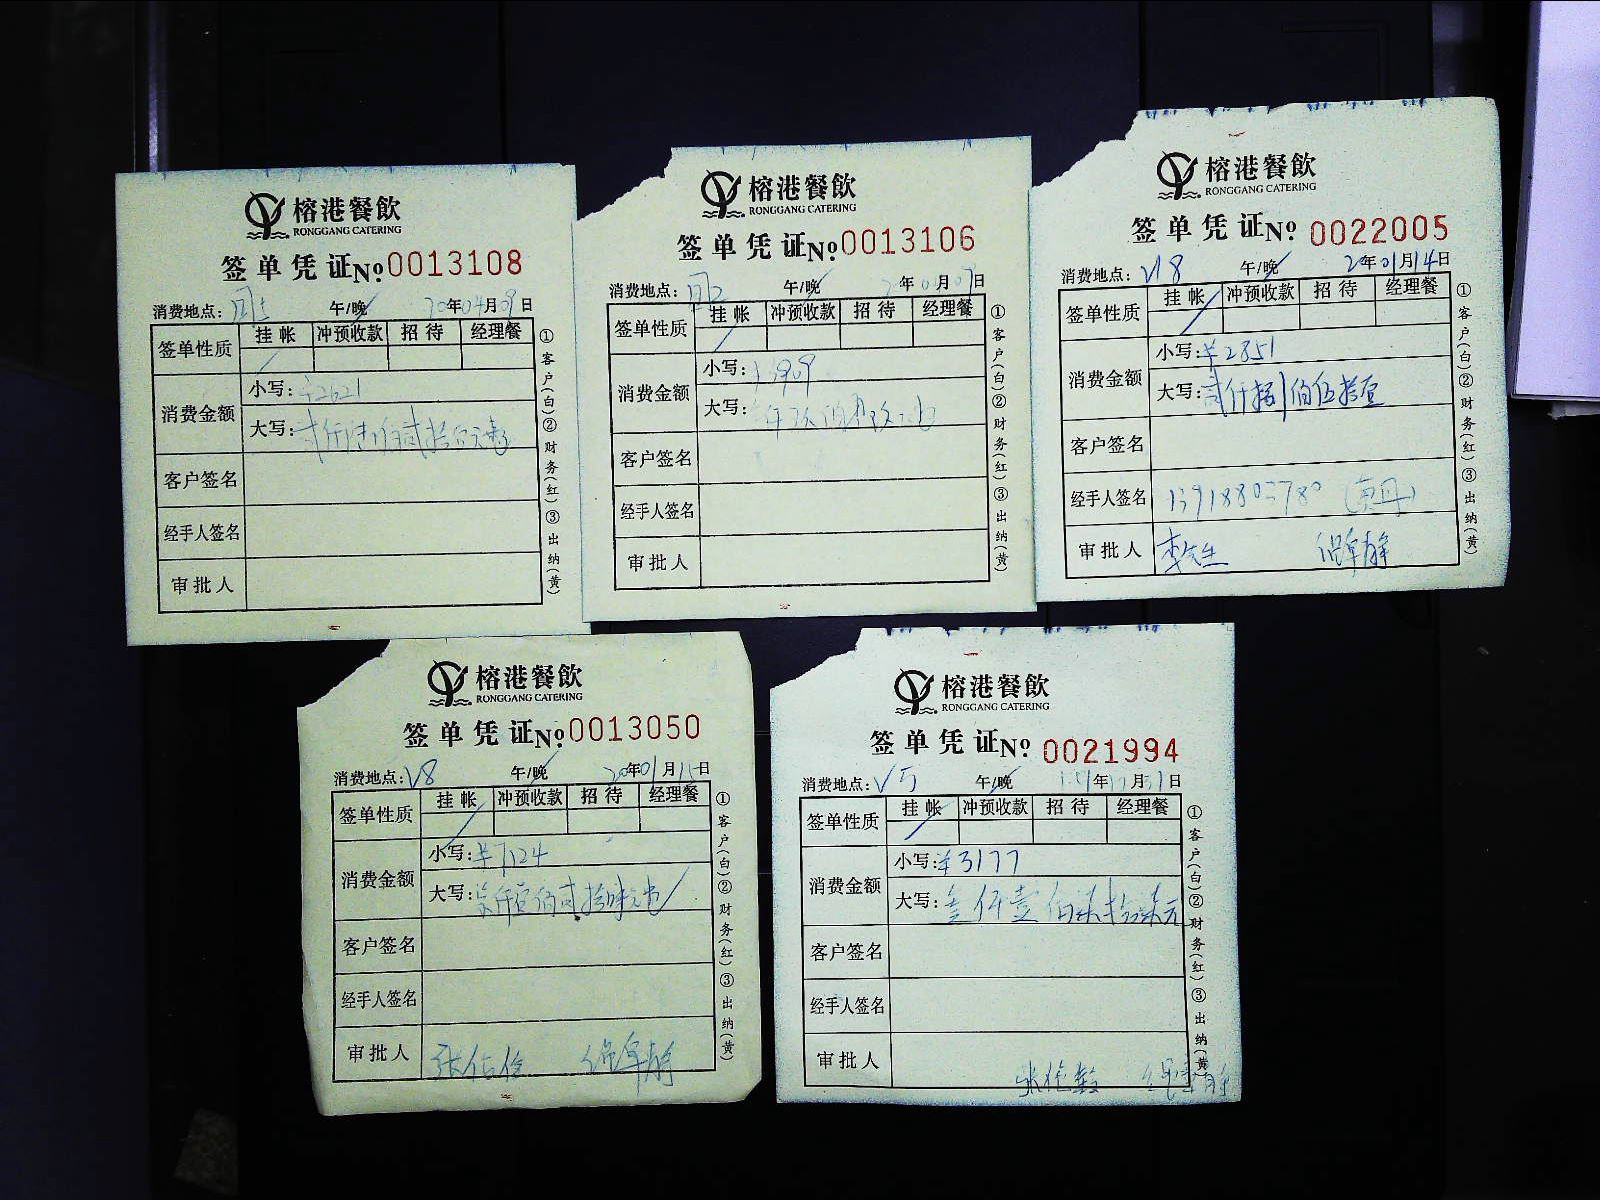 榕港餐飲
RONGGANG CATERING
签单凭证№0013108
消费地点: 午/晚 20年04月09日
签单性质 挂帐 冲预收款 招待 经理餐
消费金额
小写: ¥2621
大写: 贰仟陆佰贰拾
客户签名
经手人签名
审批人
①客户(白)②财务(红)③出纳(黄)
榕港餐飲
RONGGANG CATERING
签单凭证№0013106
消费地点: 午/晚 年01月07日
签单性质 挂帐 冲预收款 招待 经理餐
消费金额
小写:
大写:
客户签名
经手人签名
审批人
①客户(白)②财务(红)③出纳(黄)
榕港餐飲
RONGGANG CATERING
签单凭证№ 0022005
消费地点: V18 午/晚 20年01月14日
签单性质 挂帐 冲预收款 招待 经理餐
消费金额
小写: ¥2851
大写: 贰仟捌佰伍拾壹
客户签名
经手人签名
审批人 李先生
①客户(白)②财务(红)③出纳(黄)
榕港餐飲
RONGGANG CATERING
签单凭证№0013050
消费地点: V8 午/晚 20年01月15日
签单性质 挂帐 冲预收款 招待 经理餐
消费金额
小写: ¥7124
大写: 柒仟壹佰贰拾肆元
客户签名
经手人签名
审批人
①客户(白)②财务(红)③出纳(黄)
榕港餐飲
RONGGANG CATERING
签单凭证№ 0021994
消费地点: V5 午/晚 年 月31日
签单性质 挂帐 冲预收款 招待 经理餐
消费金额
小写: ¥3177
大写: 叁仟壹佰柒拾柒元
客户签名
经手人签名
审批人
①客户(白)②财务(红)③出纳(黄)